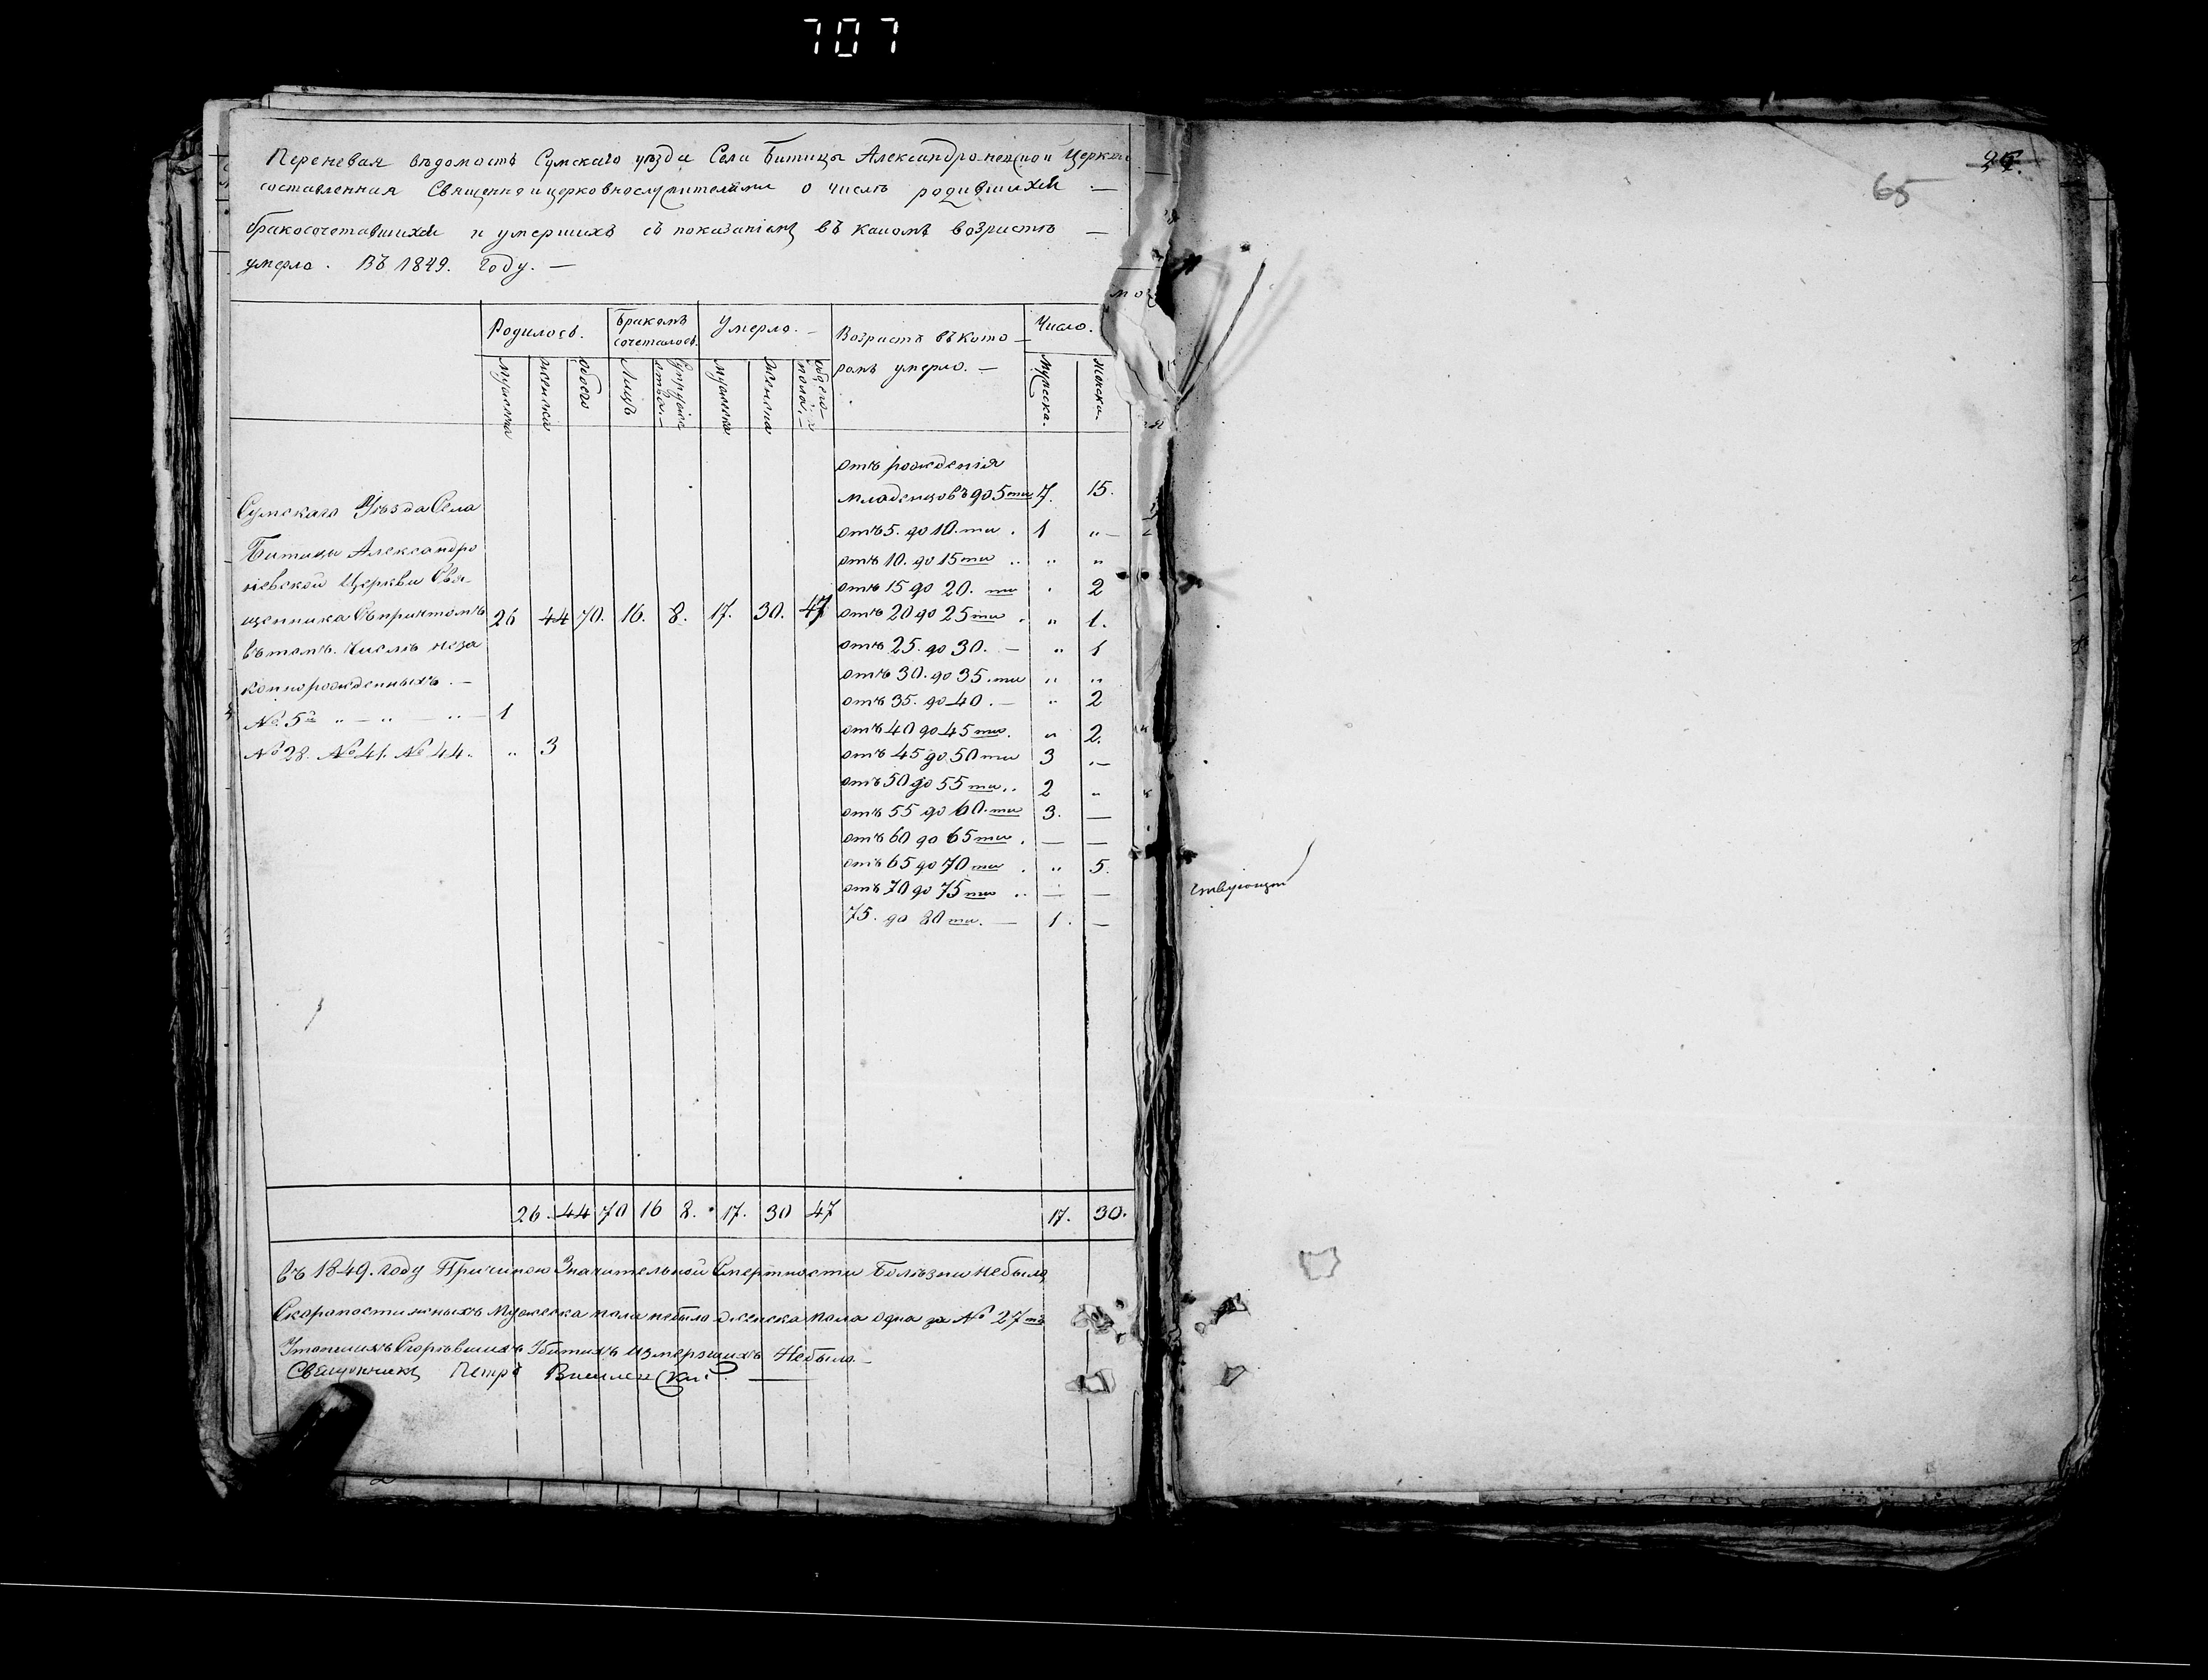 707
Переневая вѣдомость Сумскаго уѣзда Села Битицы Александроневской Церкви
составленная Священно и церковнослужителями о числѣ родившихся —
бракосочетавшихся и умершихъ съ показаніемъ въ какомъ возрастѣ —
умерло. Въ 1849. году. —
Родилось. Бракомъ сочеталось. Умерло. — Возрастъ въ кото- Число.
ромъ умерло. —
мужеска женска обоего Лицъ Супружества.— мужеска женска обоего пола.— мужеска. женска.
отъ рожденія
младенцовъ до 5ти 7. 15.
Сумскаго Уѣзда Села
отъ 5. до 10.ти . 1 „ —
Битицы Александро
отъ 10. до 15ти .. „ „
невской Церкви Свя-
отъ 15 до 20. ти „ 2
щенника Съ причтомъ 26 44 70. 16. 8. 17. 30. 47 отъ 20 до 25ти . „ 1.
въ томъ. Числѣ неза
отъ 25. до 30. — „ 1
коннорожденныхъ. —
отъ 30. до 35.ти „ „
отъ 35. до 40. — „ 2
№ 5й „ — „ — „ — 1
отъ 40 до 45ти. „ 2.
№ 28. № 41. № 44. „ 3
отъ 45 до 50ти 3 „—
отъ 50 до 55ти.. 2 „
отъ 55 до 60.ти 3. —
отъ 60 до 65ти . — —
отъ 65 до 70ти . „ 5.
отъ 70 до 75ти .. — —
75. до 80ти. — 1. —
26. 44 70 16 8. 17. 30 47 17. 30.
въ 1849. году Причиною Значительной Смертности Болѣзни небыло,
Скоропостижныхъ Мужеска пола небыло женска пола одна за № 27мъ
Утопшихъ Сгорѣвшихъ Убитыхъ Измерзшихъ Небыло. —
Священникъ Петръ
65
ствующій